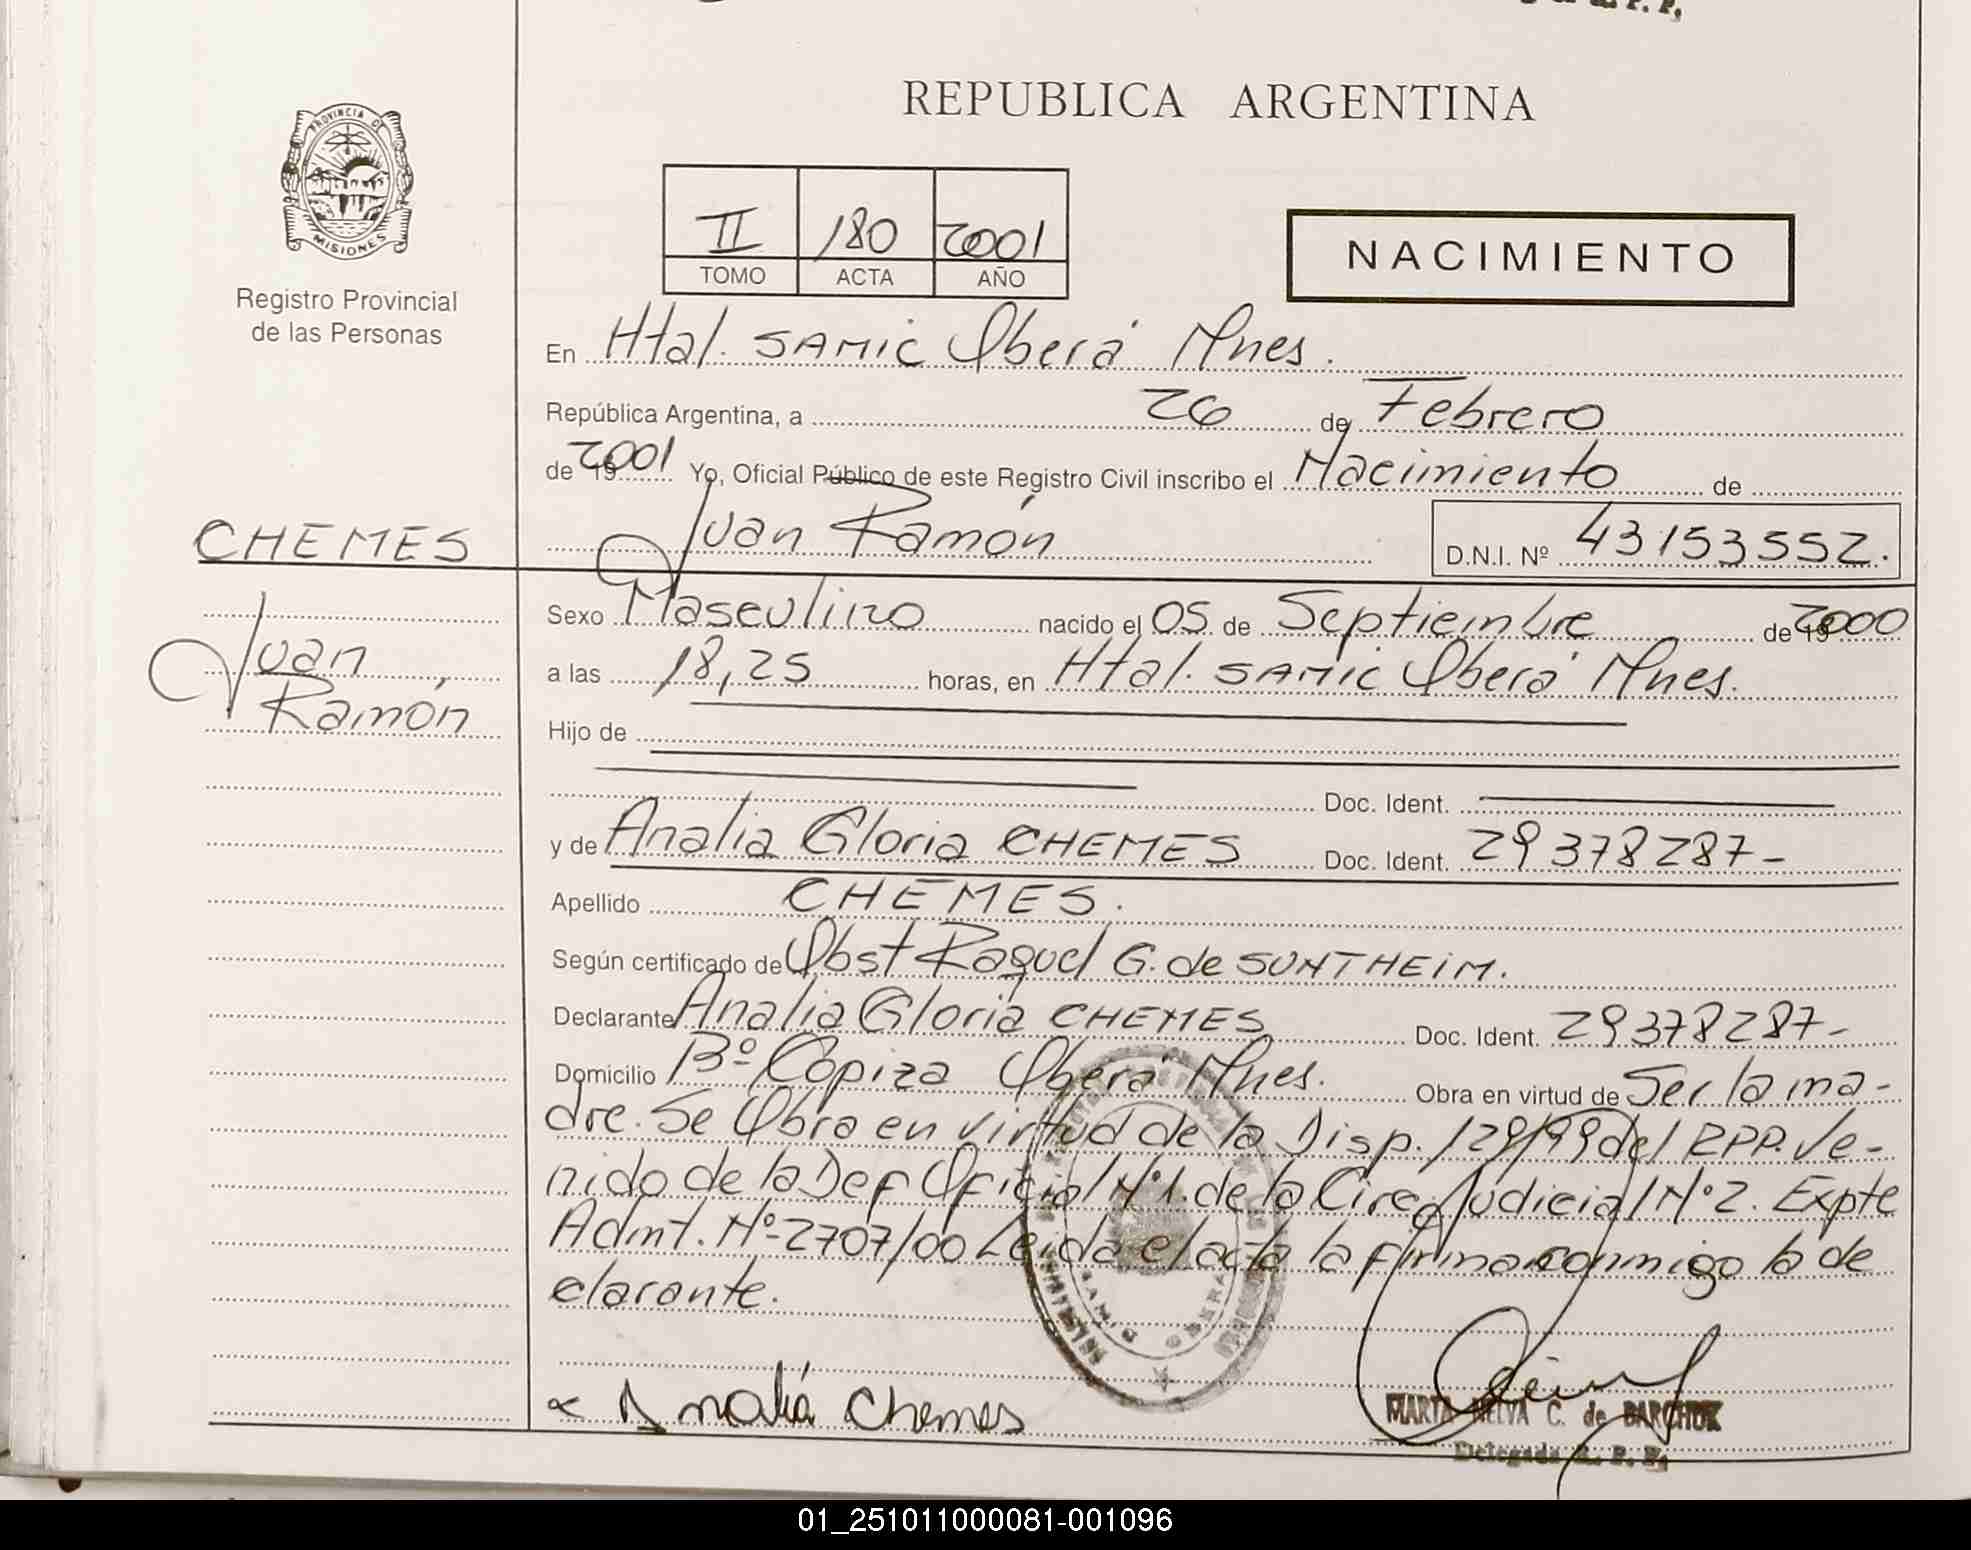 R. P. P.
REPUBLICA ARGENTINA
PROVINCIA DE
MISIONES
Registro Provincial
de las Personas
II 180 2001
TOMO ACTA AÑO
NACIMIENTO
En Htal. SAMIC Oberá Mnes.
República Argentina, a 26 de Febrero
de 19 2001 Yo, Oficial Público de este Registro Civil inscribo el Nacimiento de
CHEMES Juan Ramón D.N.I. Nº 43153552.
Juan
Ramón
Sexo Masculino nacido el 05 de Septiembre de 19 2000
a las 18,25 horas, en Htal. SAMIC Oberá Mnes.
Hijo de
Doc. Ident.
y de Analia Gloria CHEMES Doc. Ident. 29378287-
Apellido CHEMES.
Según certificado de Obst Raquel G. de SUNTHEIM.
Declarante Analia Gloria CHEMES Doc. Ident. 29378287-
Domicilio Bº Copiza Oberá Mnes. Obra en virtud de Ser la ma-
dre. Se Obra en virtud de la Disp. 129/99 del RPP. Ve-
nido de la Def Oficial Nº1. de la Circ Judicial Nº2. Expte
Admt. Nº 2707/00 Leida el acta la firma conmigo la de
clarante.
Analiá Chemes
MARTA NELVA C. de BARCHUK
Delegada R. P. P.
01_251011000081-001096